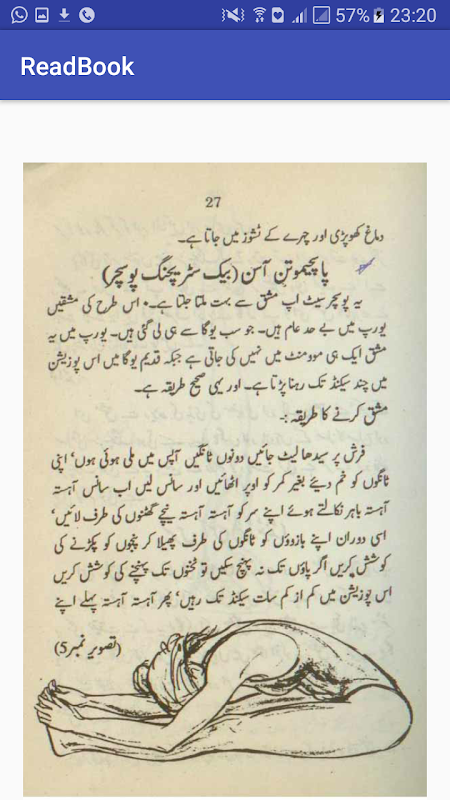 57% 23:20
ReadBook
27
دماغ کھوپڑی اور چہرے کے ٹشوز میں جاتا ہے۔
پاچیموتن آسن (بیک سٹریچنگ پوسچر)
یہ پوسچر سیٹ اپ مشق سے بہت ملتا جلتا ہے۔ اس طرح کی مشقیں
یورپ میں بے حد عام ہیں۔ جو سب یوگا سے ہی لی گئی ہیں۔ یورپ میں یہ
مشق ایک ہی موومنٹ میں نہیں کی جاتی ہے جبکہ قدیم یوگا میں اس پوزیشن
میں چند سیکنڈ تک رہنا پڑتا ہے۔ اور یہی صحیح طریقہ ہے۔
مشق کرنے کا طریقہ :۔
فرش پر سیدھا لیٹ جائیں دونوں ٹانگیں آپس میں ملی ہوئی ہوں' اپنی
ٹانگوں کو خم دیئے بغیر کمر کو اوپر اٹھائیں اور سانس لیں اب سانس آہستہ
آہستہ باہر نکالتے ہوئے اپنے سر کو آہستہ آہستہ نیچے گھٹنوں کی طرف لائیں'
اسی دوران اپنے بازوؤں کو ٹانگوں کی طرف پھیلا کر پنجوں کو پکڑنے کی
کوشش کریں اگر پاؤں تک نہ پہنچ سکیں تو ٹخنوں تک پہنچنے کی کوشش کریں
اس پوزیشن میں کم از کم سات سیکنڈ تک رہیں' پھر آہستہ آہستہ پہلے اپنے
(تصویر نمبر 5)